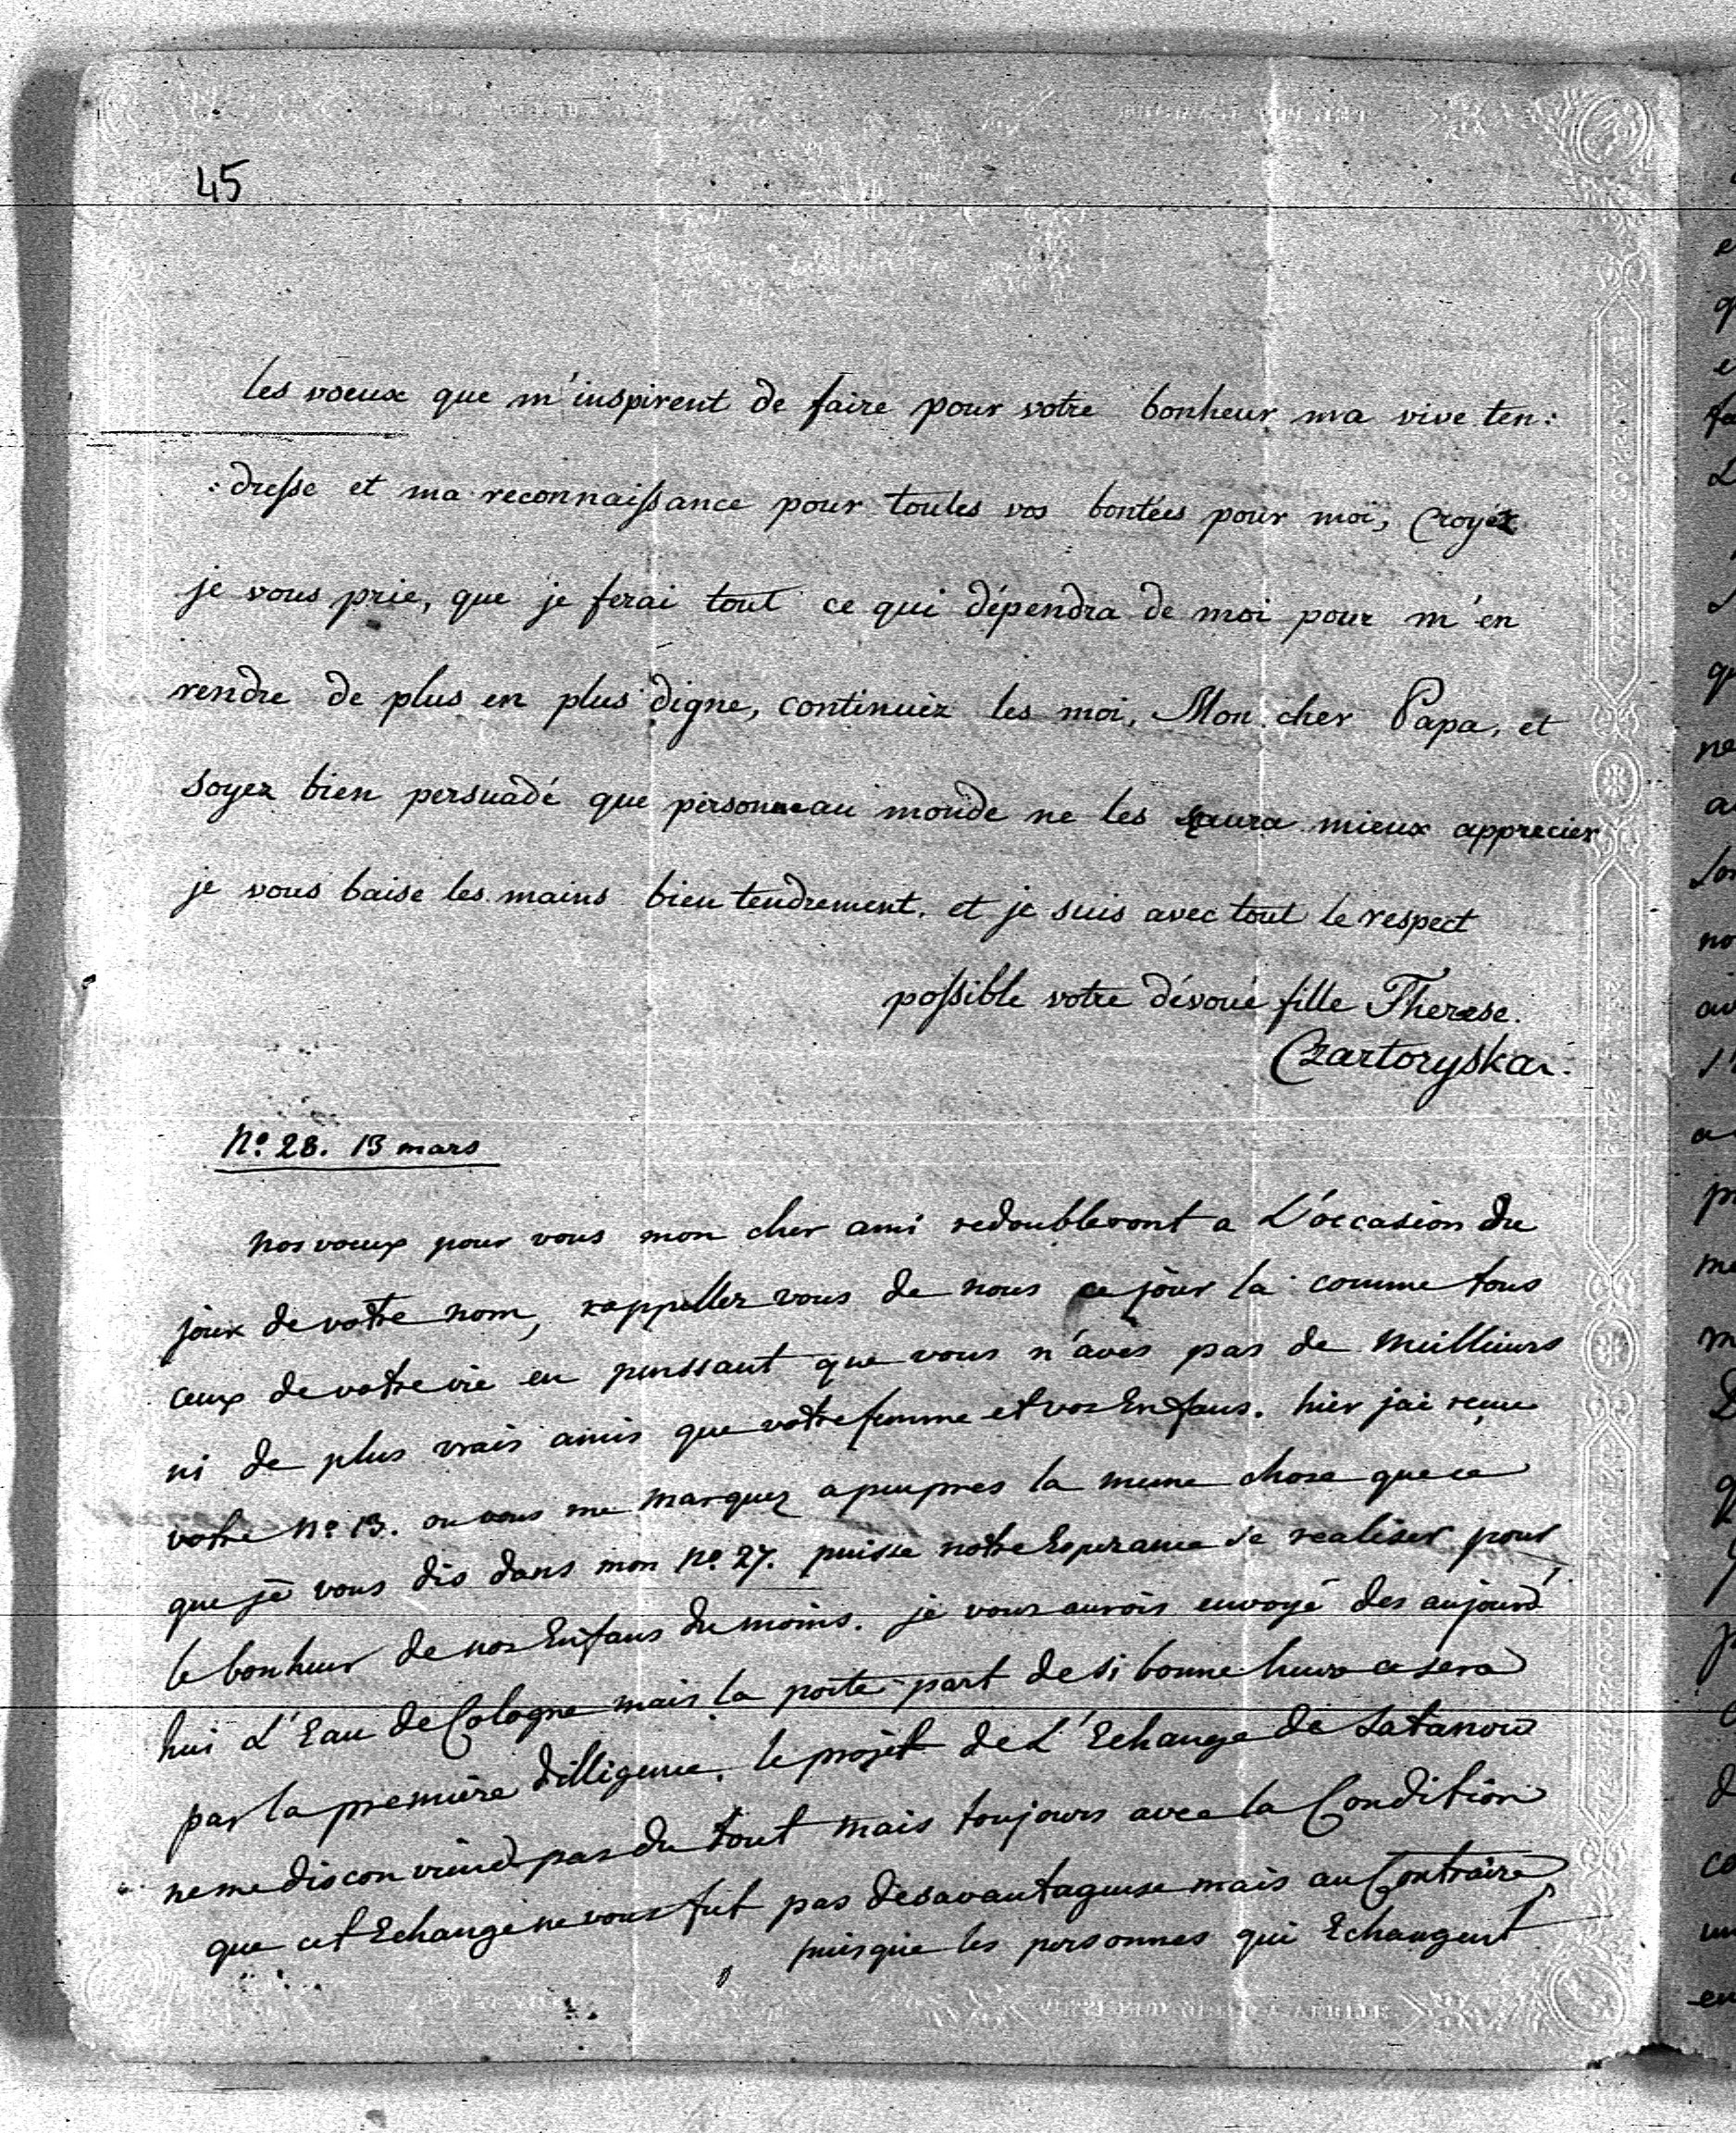 45
les voeux que m'inspirent de faire pour votre bonheur ma vive ten:
:dresse et ma reconnaissance pour toutes vos bontées pour moi, Croyez
je vous prie, que je ferai tout ce qui dépendra de moi pour m'en
rendre de plus en plus digne, continuéz les moi, Mon cher Papa, et
soyez bien persuadé que personne au monde ne les saura mieux apprecier
je vous baise les mains bien tendrement. et je suis avec tout le respect
possible votre dévoué fille Therese.
Czartoryska.
No. 28. 13 mars
nos voeux pour vous mon cher ami redoubleront a L'occasion du
jour de votre nom, rappellez vous de nous ce jour la comme tous
ceux de votre vie en penssant que vous n'avés pas de meillieurs
ni de plus vrais amis que votre femme et vos Enfans. hier jai reçue
votre No. 13. ou vous me marquez apeupres la meme chose que ce
que je vous dis dans mon No. 27. puisse notre Esperance se realiser pour
le bonheur de nos Enfans du moins. je vous aurois envoyé des aujourd
hui L'Eau de Cologne mais la poste part de si bonne heure ce sera
par la premiere dilligence. le projet de L'Echange de Satanow
ne me disconviend pas du tout mais toujours avec la Condition
que cet Echange ne vous fut pas désavantageuse mais au Contraire
puisque les personnes qui Echangent